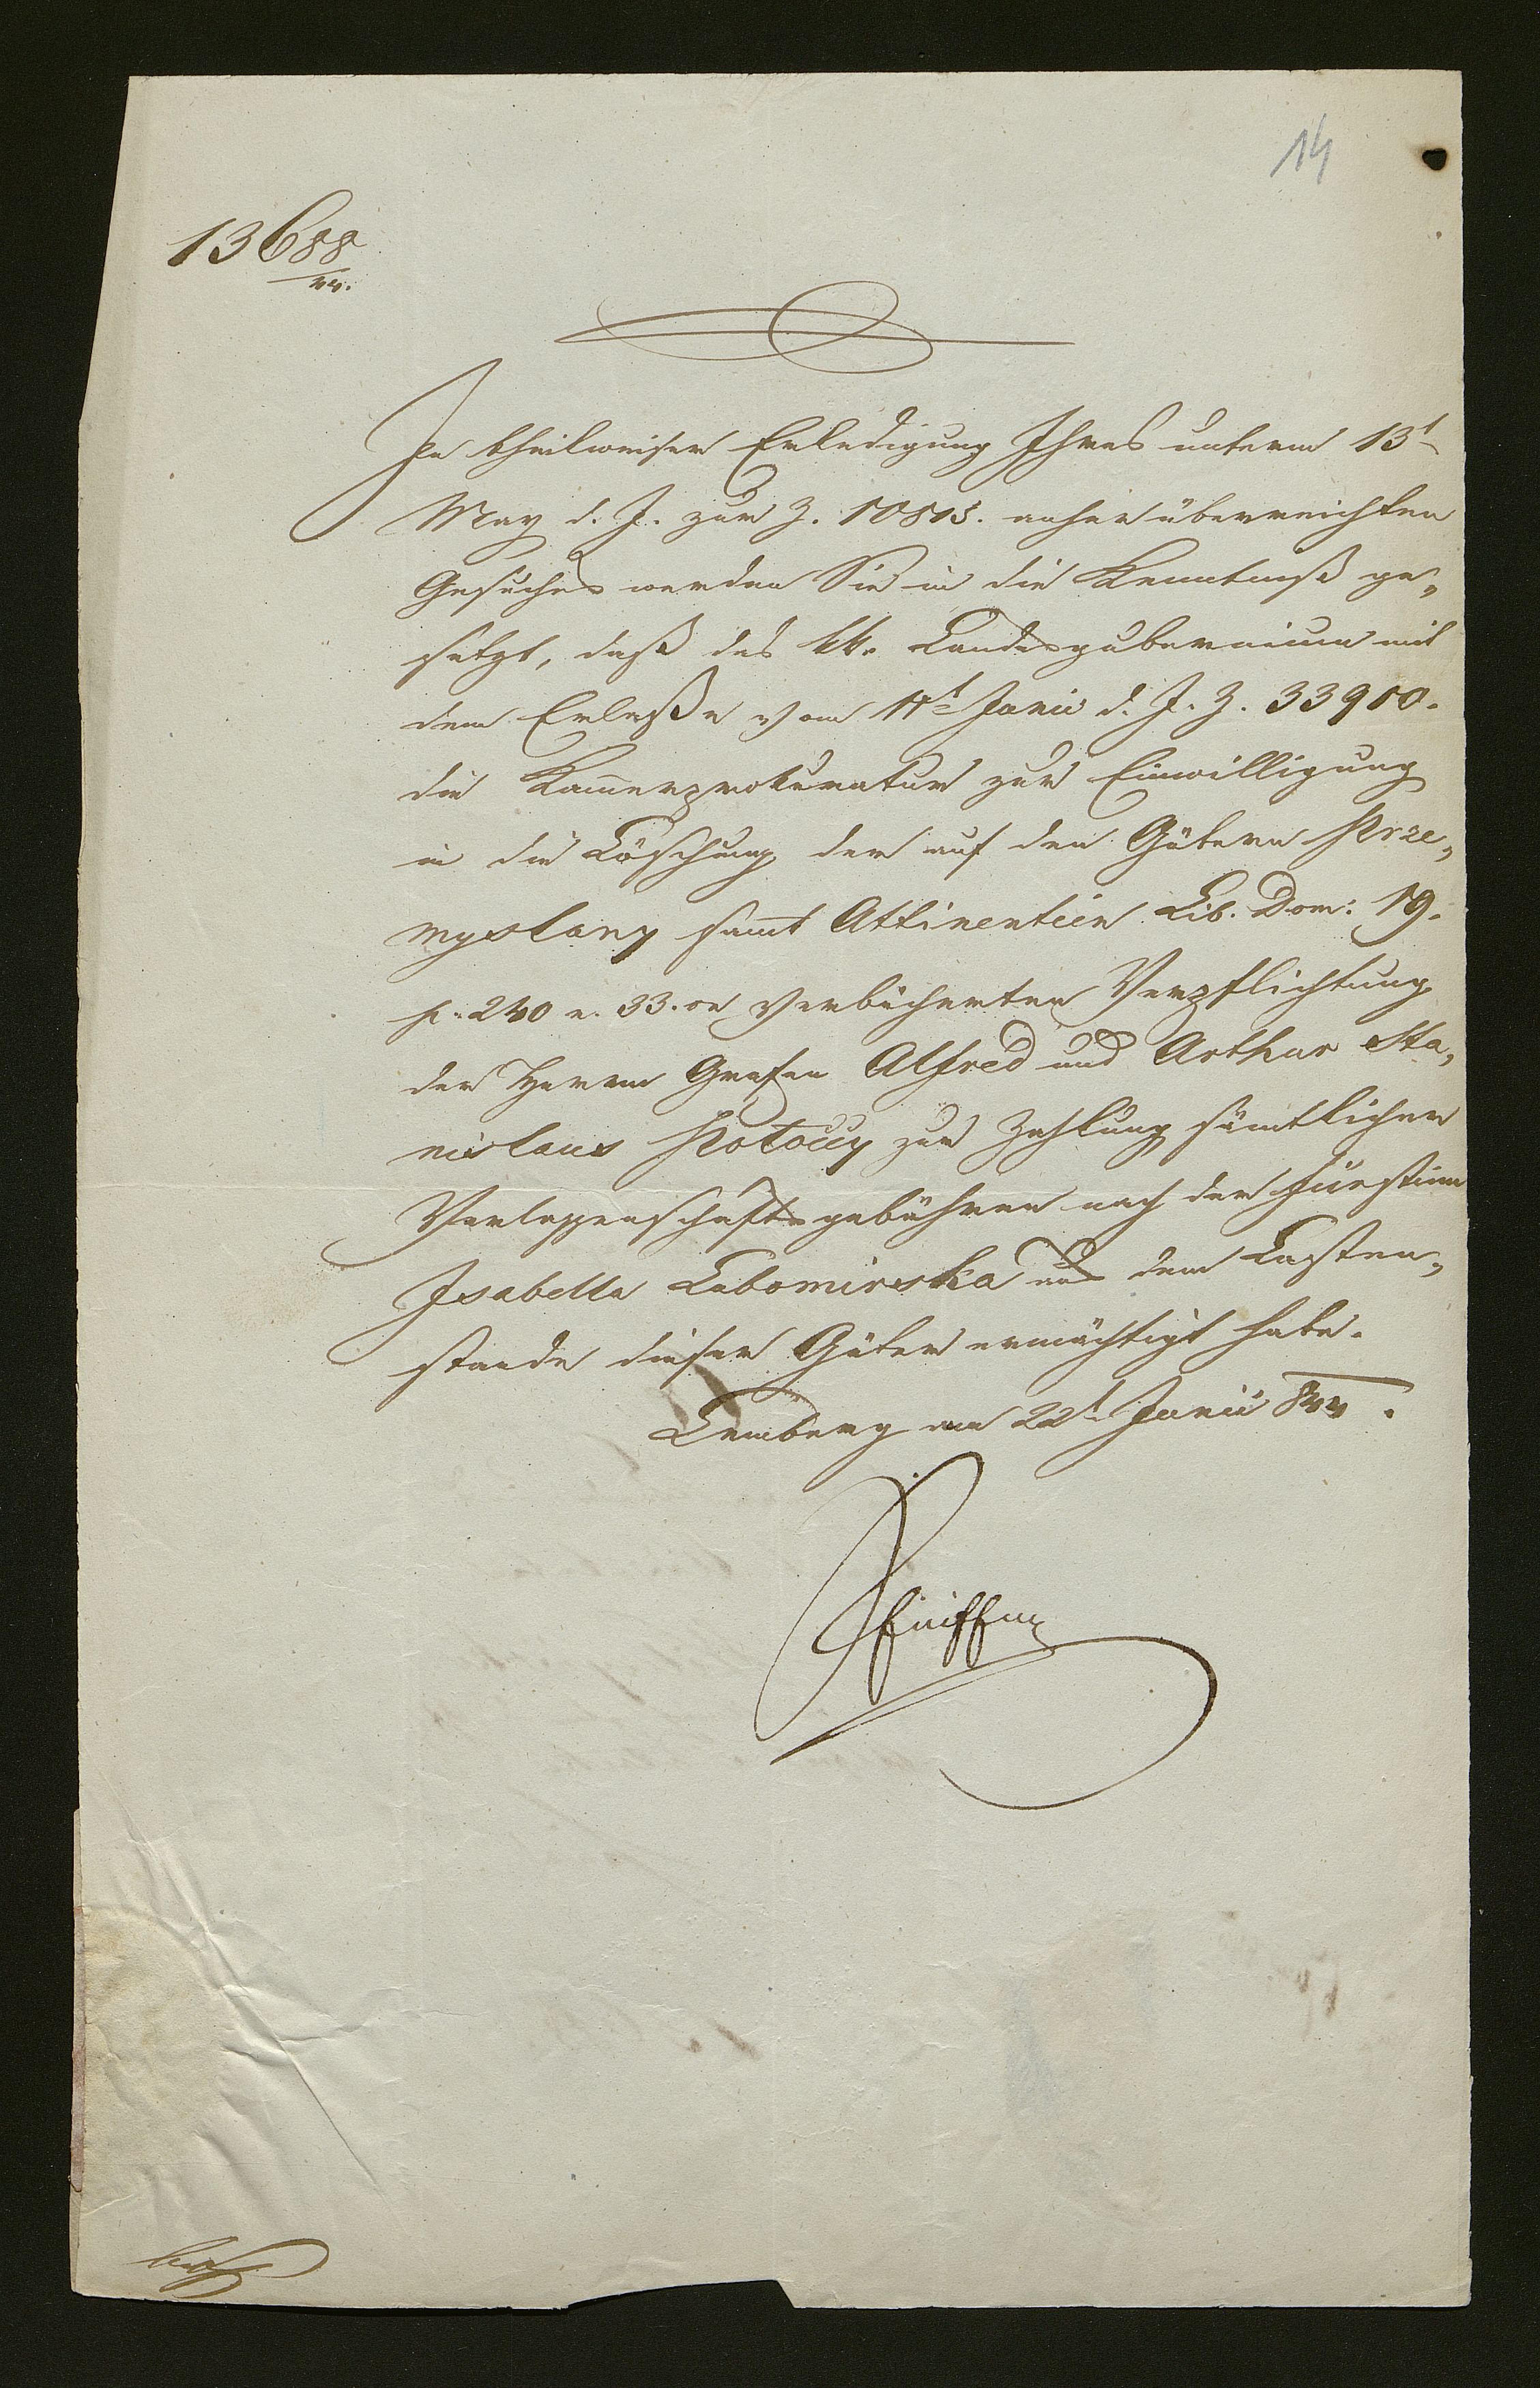 14
13688
44.
In theilweiser Erledigung Ihres unterm 13t
May d. J. zur Z. 10815. anher überreichten
Gesuches werden Sie in die Kenntniß ge„
setzt, daß das kk. Landesgubernium mit
dem Erlaße vom 11t Junii d. J. Z. 33910.
die Kam̅erprokuratur zur Einwilligung
in die Löschung der auf den Gütern Prze„
myslany sam̅t Attinentien Lib. Dom: 19.
p. 240 n. 33. on verbücherten Verpflichtung
der Herrn Grafen Alfred und Arthur Sta„
nislaus Potocky zur Zahlung sämtlicher
Verlassenschaftsgebühren nach der Fürstinn
Isabella Lubomirska aus dem Lasten„
stande dieser Güter ermächtigt habe.
Lemberg am 22t Junii 844.